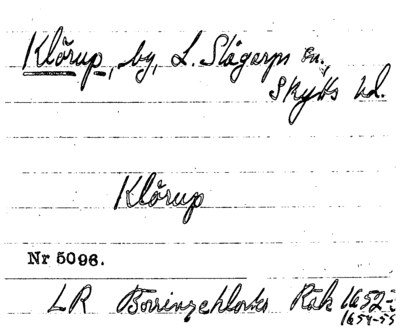 Klörup, by, L. Slågarps sn.,
Skytts hd.
Klörup
Nr 5096.
LR Börringeklosters Räk 1652-
1654-55